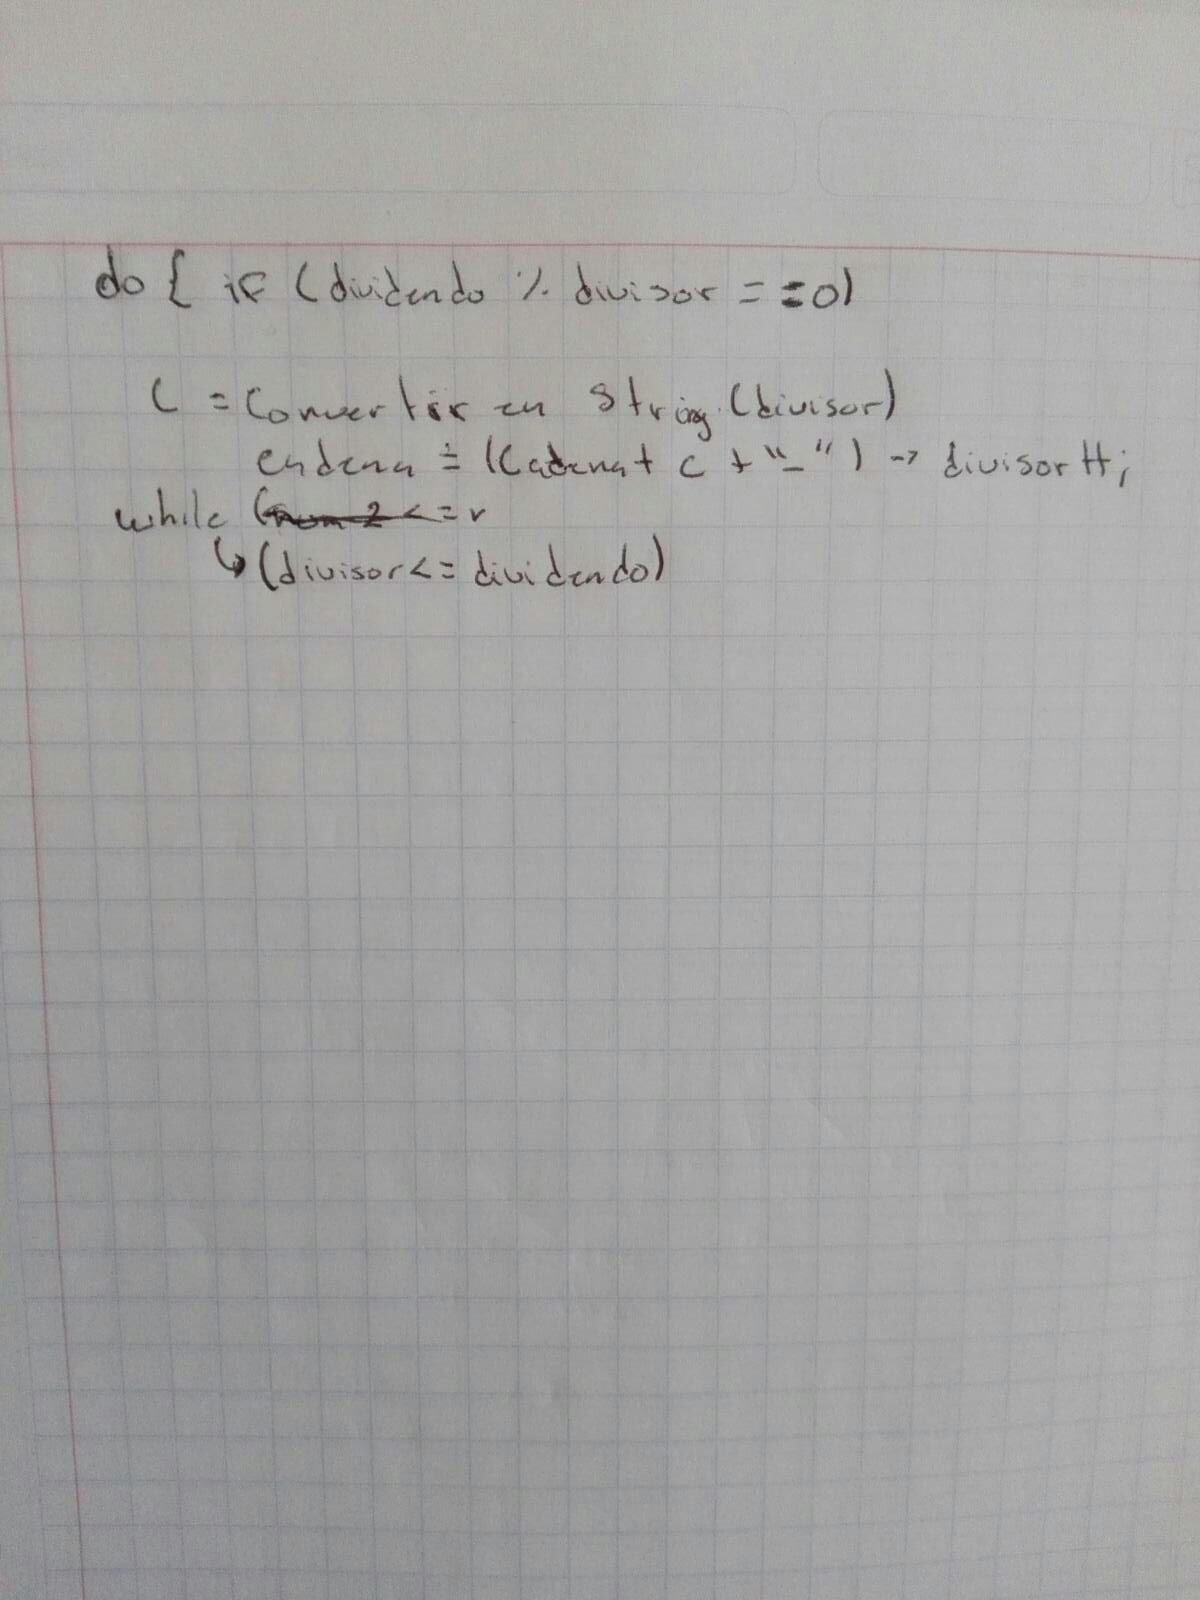 do { if (dividendo % divisor = =0)
C = Convertir en String (divisor)
cadena = (Cadena + c + "-") -> divisor ++;
while (
↳ (divisor <= dividendo)